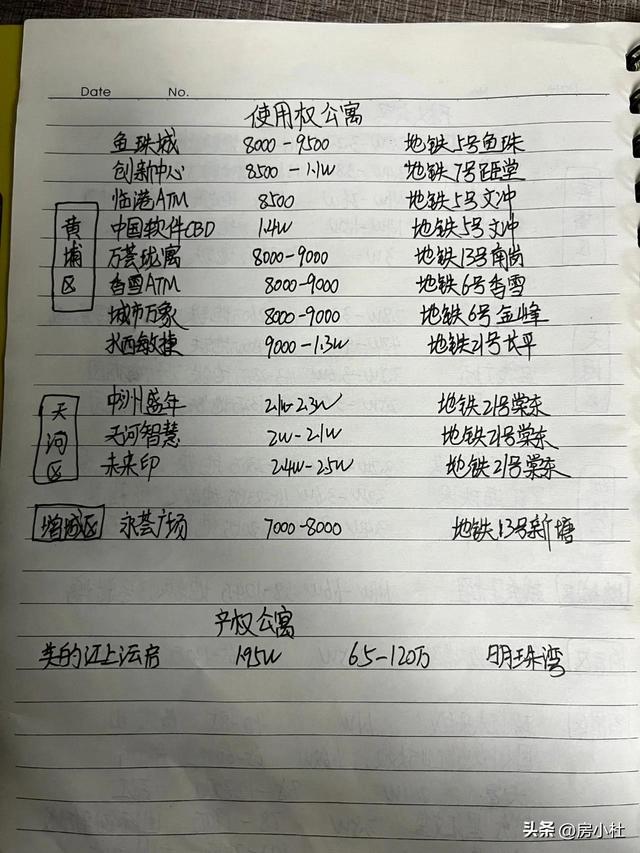 Date No.
使用权公寓
鱼珠城 8000-9500 地铁5号鱼珠
创新中心 8500-1.1W 地铁7号
临港ATM 8500 地铁5号文冲
黄埔区 中国软件CBD 1.4W 地铁5号文冲
万荟珑寓 8000-9000 地铁13号南岗
香雪ATM 8000-9000 地铁6号香雪
城市万象 8000-9000 地铁6号金峰
水西敏捷 9000-1.3W 地铁21号长平
天河区 中洲盛年 2.1W-2.3W 地铁21号棠东
天河智慧 2W-2.1W 地铁21号棠东
未来印 2.4W-2.5W 地铁21号棠东
增城区 永荟广场 7000-8000 地铁13号新塘
产权公寓
美的江上沄启 1.95W 65-120万 明珠湾
头条 @房小社